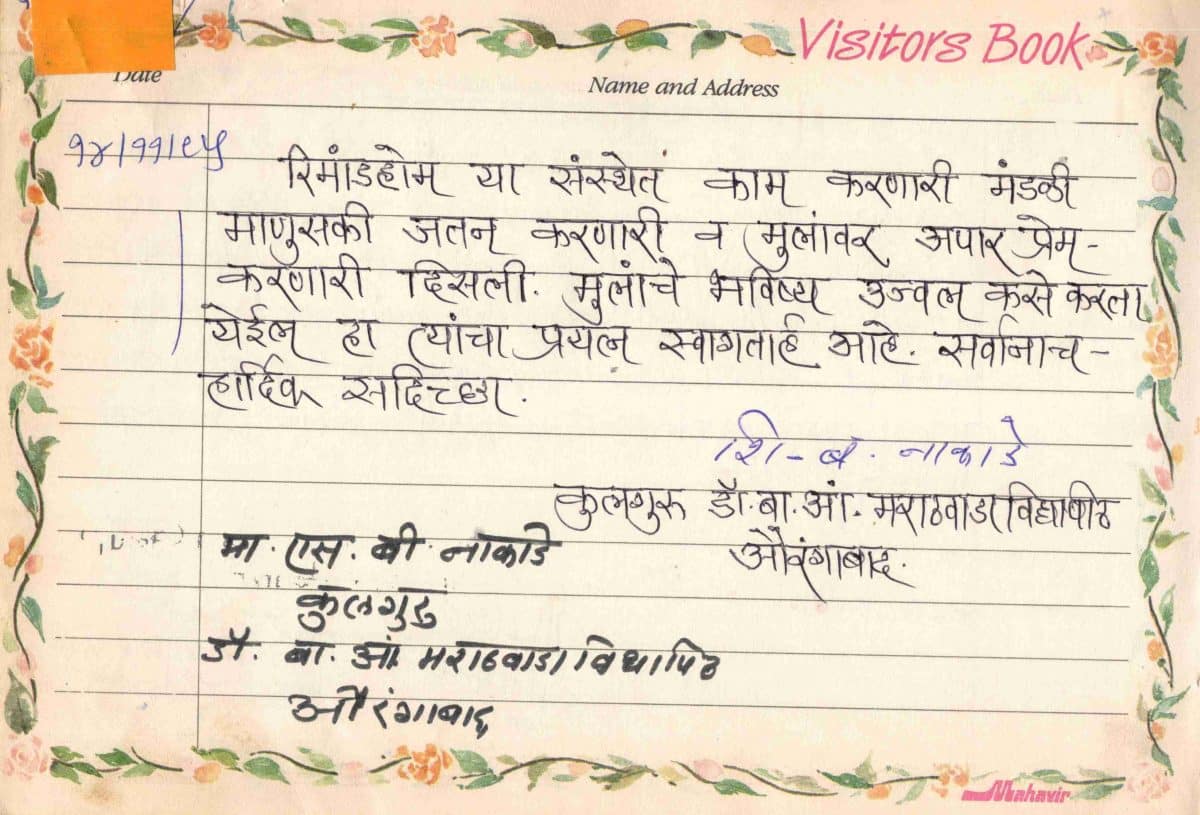 Visitors Book
Date
Name and Address
१४/११/९५
रिमांडहोम या संस्थेत काम करणारी मंडळी
माणुसकी जतन करणारी व मुलांवर अपार प्रेम-
करणारी दिसली. मुलांचे भविष्य उज्वल कसे करता
येईल हा त्यांचा प्रयत्न स्वागतार्ह आहे. सर्वानाच -
हार्दिक सदिच्छा.
शि - ब. नाकाडे
कुलगुरु डॉ. बा. आं. मराठवाडा विद्यापीठ
औरंगाबाद.
मा. एस. बी. नाकाडे
कुलगुरु
डॉ. बा. आं. मराठवाडा विद्यापिठ
औरंगाबाद
Mahavir